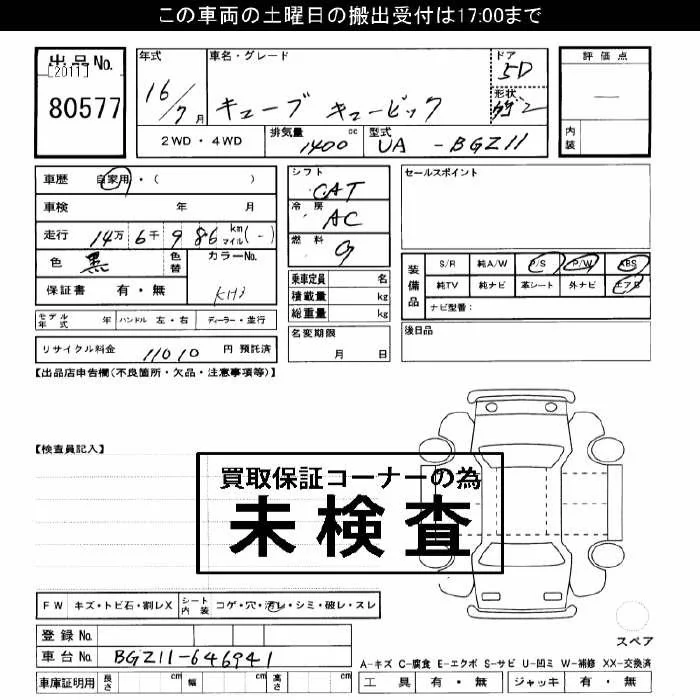 この車両の土曜日の搬出受付は17:00まで
出品No.
[2011]
80577
年式
16/7月
車名・グレード
キューブ キュービック
ドア
5D
形状
2WD・4WD
排気量
1400 cc
型式
UA - BGZ11
評価点
—
内装
車歴 自家用・( )
車検 年 月
走行 14万 6千 9 86 km マイル (-)
色 黒 色替
カラーNo.
KH3
保証書 有・無
モデル年式 年 ハンドル 左・右 ディーラー・並行
リサイクル料金 11010 円 預託済
シフト
CAT
冷房
AC
燃料
G
乗車定員 名
積載量 kg
総重量 kg
名変期限
月 日
セールスポイント
装備品
S/R 純A/W P/S P/W ABS
純TV 純ナビ 革シート 外ナビ エアB
ナビ型番:
後日品
【出品店申告欄(不良箇所・欠品・注意事項等)】
【検査員記入】
買取保証コーナーの為
未検査
FW キズ・トビ石・割レX シート内装 コゲ・穴・汚レ・シミ・破レ・スレ
登録No.
車台No. BGZ11-646941
車庫証明用 長さ cm 幅 cm 高さ cm
スペア
A-キズ C-腐食 E-エクボ S-サビ U-凹ミ W-補修 XX-交換済
工具 有・無 ジャッキ 有・無